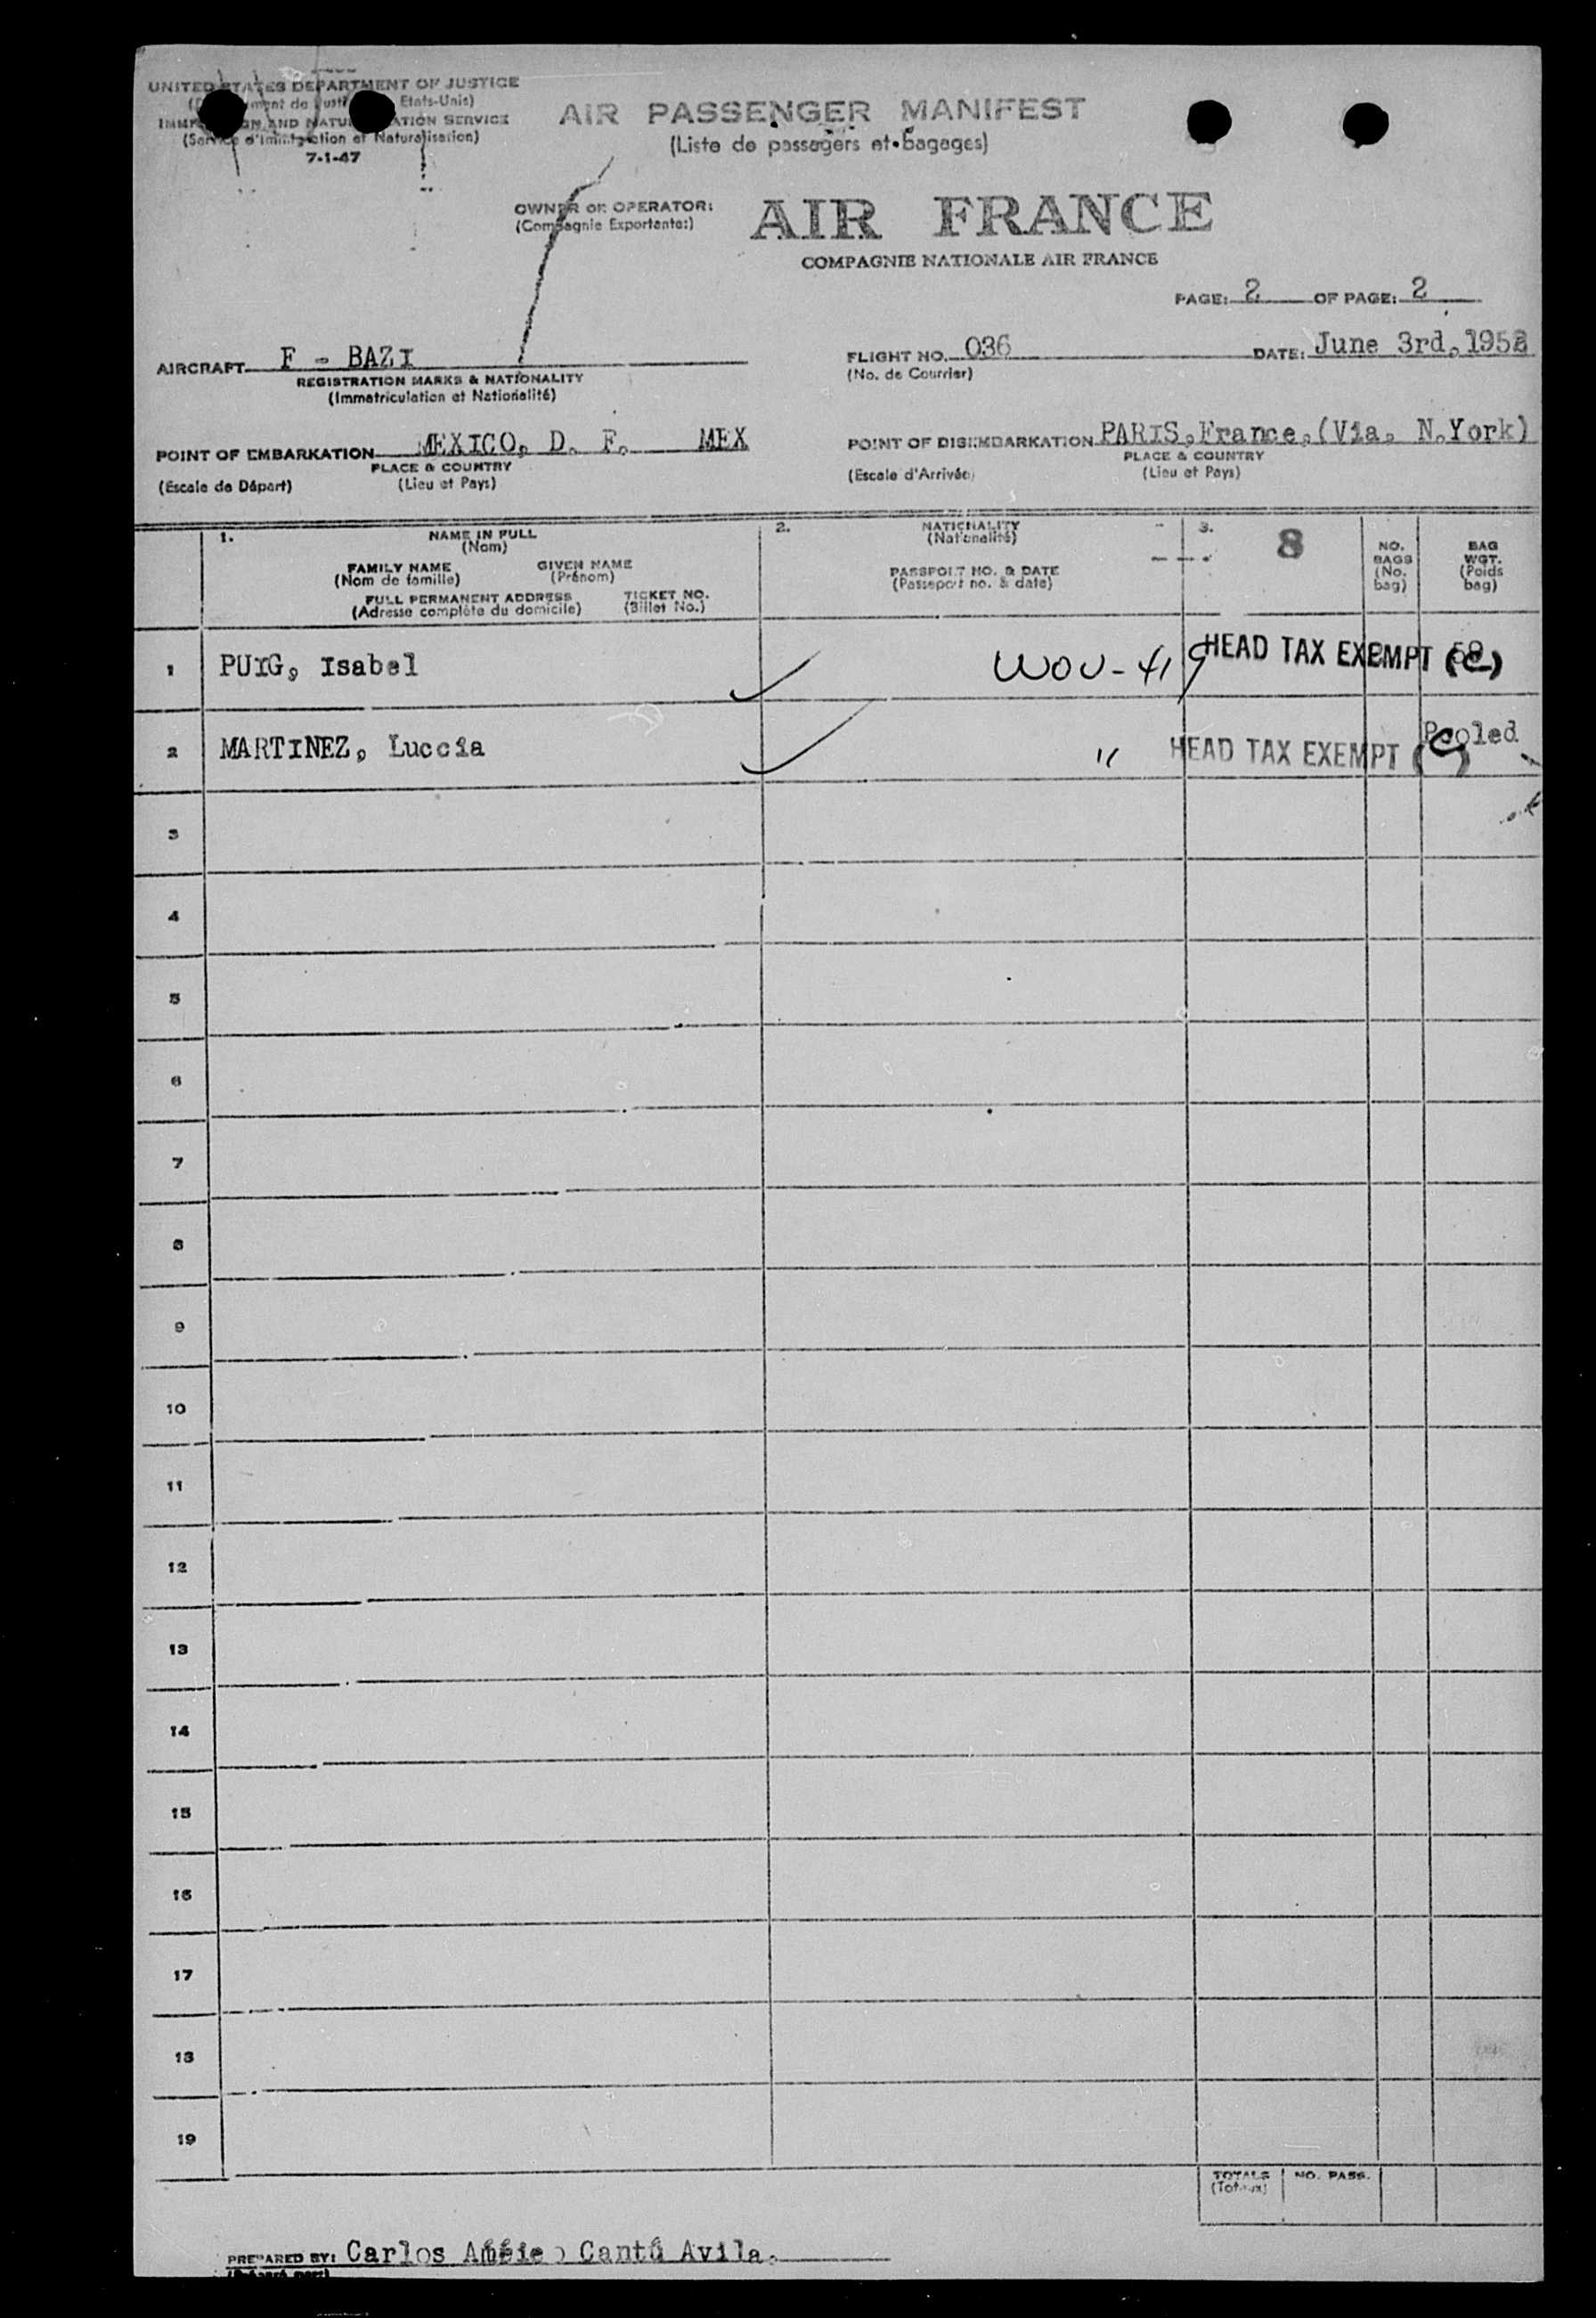 UNITED STATES DEPARTMENT OF JUSTICE
Etats-Unis)
IMMIGRATION AND NATURALIZATION SERVICE
(Service d'Immigration et Naturalisation)
7-1-47
AIR PASSENGER MANIFEST
(Liste de passagers et bagages)
OWNER OR OPERATOR:
(Compagnie Exportante:)
AIR FRANCE
COMPAGNIE NATIONALE AIR FRANCE
PAGE: 2 OF PAGE: 2
AIRCRAFT F - BAZI
REGISTRATION MARKS & NATIONALITY
(Immatriculation et Nationalité)
FLIGHT NO. 036
(No. de Courrier)
DATE: June 3rd, 1952
POINT OF EMBARKATION MEXICO, D. F. MEX
PLACE & COUNTRY
(Escale de Départ) (Lieu et Pays)
POINT OF DISEMBARKATION PARIS, France, (Via. N.York)
PLACE & COUNTRY
(Escale d'Arrivée) (Lieu et Pays)
1. NAME IN FULL
(Nom)
FAMILY NAME GIVEN NAME
(Nom de famille) (Prénom)
FULL PERMANENT ADDRESS TICKET NO.
(Adresse complète du domicile) (Billet No.)
2. NATIONALITY
(Nationalité)
PASSPORT NO. & DATE
(Passeport no. & date)
3. 8
NO.
BAGS
(No.
bag)
BAG
WGT.
(Poids
bag)
1 PUIG, Isabel WOU-419 HEAD TAX EXEMPT (C)
2 MARTINEZ, Luccia " HEAD TAX EXEMPT (C) Pooled
3
4
5
6
7
8
9
10
11
12
13
14
15
16
17
18
19
TOTALS NO. PASS.
(Totaux)
PREPARED BY: Carlos Cantú Avila.